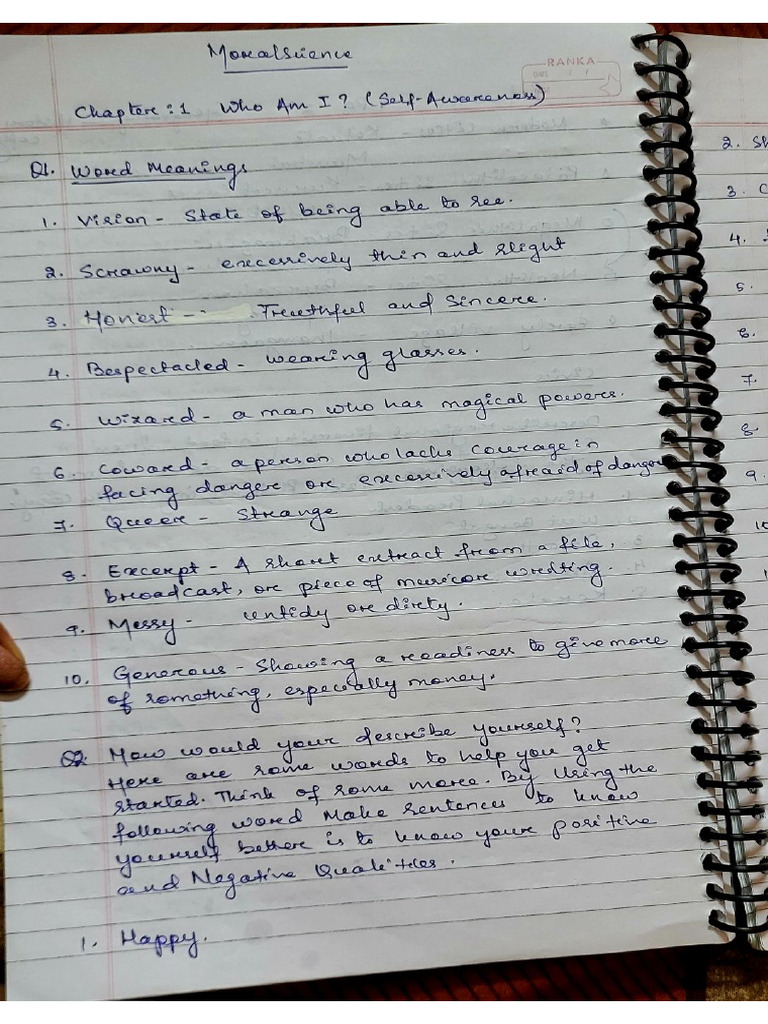 Moral Science
RANKA
DATE / /
Chapter : 1 Who Am I? (Self-Awareness)
Q1. Word Meanings
1. Vision - State of being able to see.
2. Scrawny - excessively thin and slight
3. Honest - Truthful and Sincere.
4. Bespectacled - wearing glasses.
5. Wizard - a man who has magical powers.
6. Coward - a person who lacks courage in
facing danger or excessively afraid of danger
7. Queer - Strange
8. Excerpt - A short extract from a file,
broadcast, or piece of music or writing.
9. Messy - untidy or dirty.
10. Generous - Showing a readiness to give more
of something, especially money.
Q2. How would your describe yourself?
Here are some words to help you get
started. Think of some more. By Using the
following word Make sentences to know
yourself better is to know your positive
and Negative Qualities.
1. Happy.
2. Sh
3. C
4.
5.
6.
7.
8.
9.